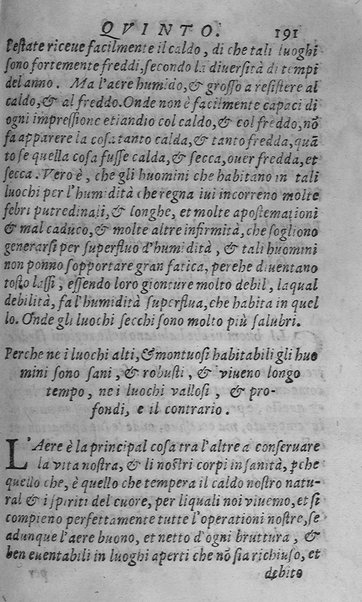 QVINTO. 191
l'estate riceue facilmente il caldo, di che tali luoghi
sono fortemente freddi, secondo la diuersità di tempi
del anno. Ma l'aere humido, & grosso a resistere al
caldo, & al freddo. Onde non è facilmente capaci di
ogni impressione etiandio col caldo, & col freddo, nõ
fa apparere la cosa tanto calda, & tanto fredda, quã
to se quella cosa fusse calda, & secca, ouer fredda, et
secca. Vero è, che gli huomini che habitano in tali
luochi per l'humidità che regna iui incorreno molte
febri putredinali, & longhe, et molte apostemationi
& mal caduco, & molte altre infirmità, che sogliono
generarsi per superfluo d'humidità, & tali huomini
non ponno sopportare gran fatica, perehe diuentano
tosto lassi, essendo loro gionture molto debil, laqual
debilità, fa l'humidità superflua, che habita in quel
lo. Onde gli luochi secchi sono molto più salubri.
Perche ne i luochi alti, & montuosi habitabili gli huo
mini sono sani, & robusti, & viueno longo
tempo, ne i luochi vallosi, & pro-
fondi, e il contrario.
L'Aere è la principal cosa tra l'altre a conseruare
la vita nostra, & li nostri corpi in sanità, ꝑche
quello che, è quello che tempera il caldo nostro natu-
ral & i spiriti del cuore, per liquali noi viuemo, et si
compieno perfettamente tutte l'operationi nostre, se
adunque l'aere buono, et netto d'ogni bruttura, &
ben euentabili in luoghi aperti che nõ sia richiuso, et
debito